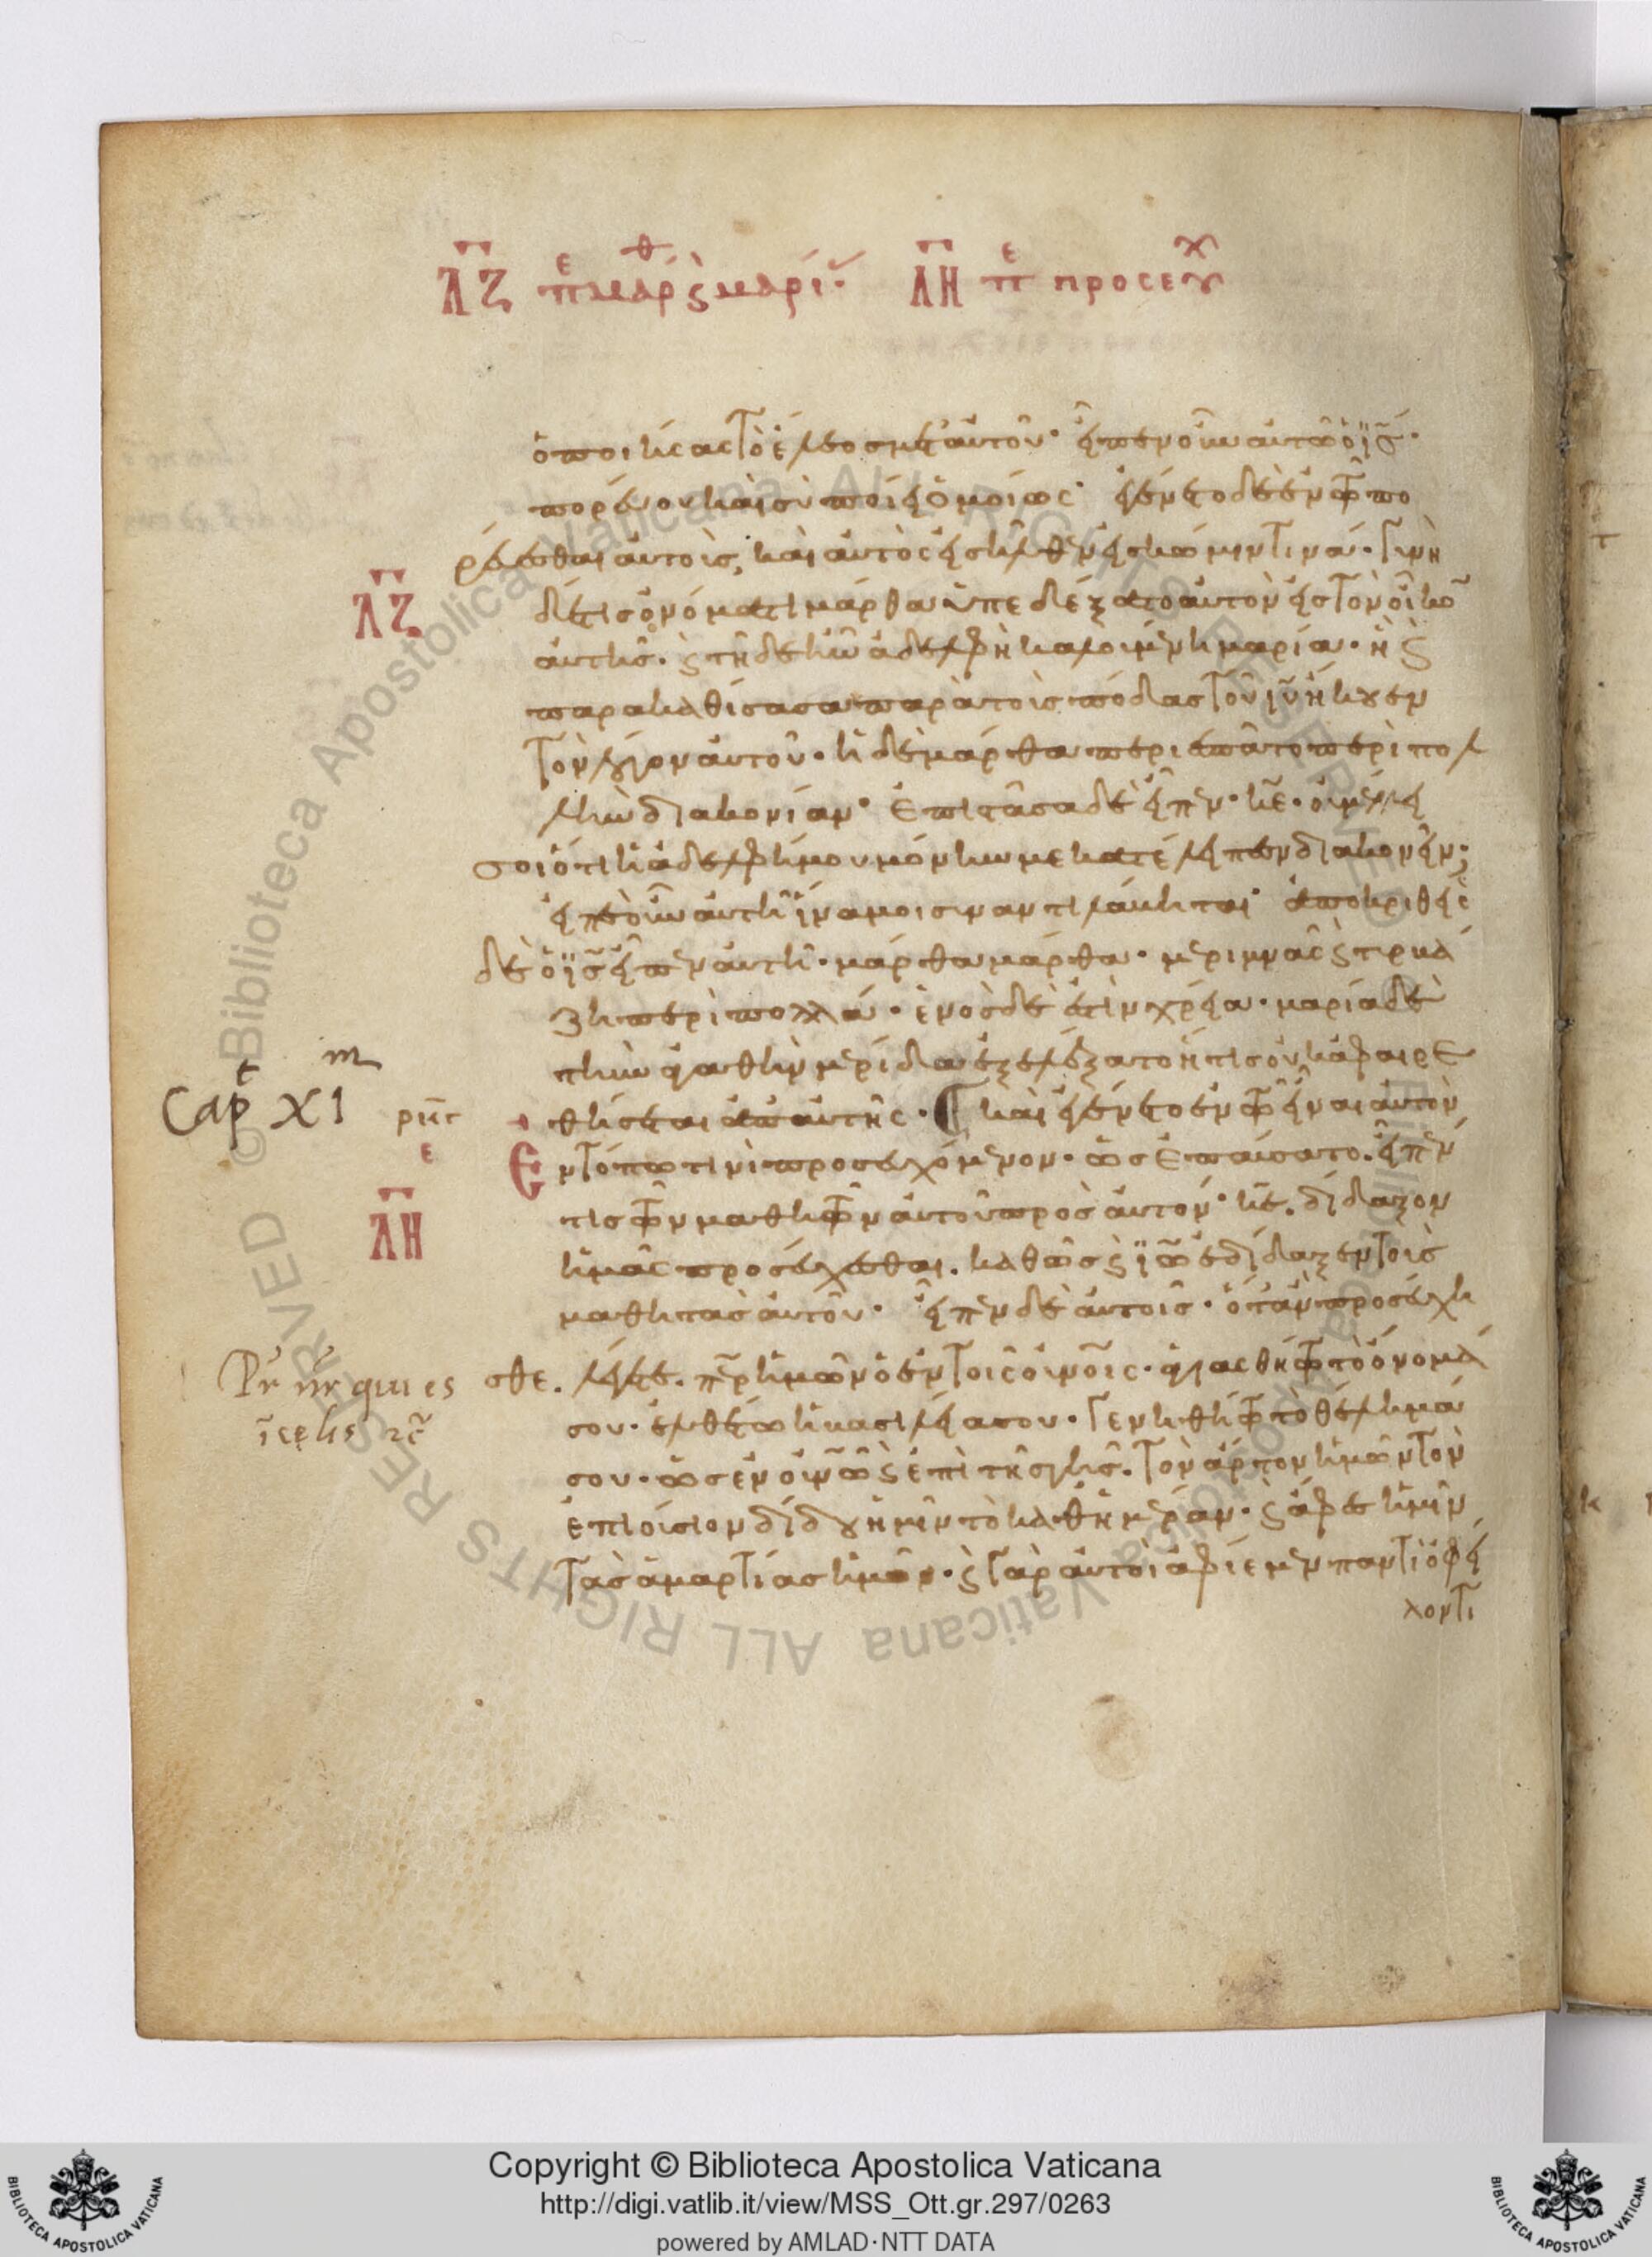 ΛΖ πε μάρθ ϗ μαρί ΛΗ πε προσευχ
ὁ ποιήσας τὸ ἔλεος μετ' αὐτοῦ. εἶπεν οὖν αὐτῶ ὁ ις.
πορεύου καὶ σὺ ποίει ὁμοίως. ἐγένετο δὲ ἐν τῶ πο
ρεύεσθαι αὐτοὺς, καὶ αὐτὸς εἰσῆλθεν εἰς κώμην τινά. γυνὴ
ΛΖ
δέ τις ὀνόματι μάρθα ὑπεδέξατο αὐτὸν εἰς τὸν οἶκον
αὐτῆς. ϗ τῆδε ἦν ἀδελφὴ καλουμένη μαρία. ἣ ϗ
παρακαθίσασα παρὰ τοὺς πόδας τοῦ ιυ ἤκουεν
τὸν λόγον αὐτοῦ. ἡ δὲ μάρθα περιεσπᾶτο περὶ πολ
λὴν διακονίαν. ἐπιστᾶσα δὲ εἶπεν. κε. οὐ μέλει
σοι ὅτι ἡ ἀδελφή μου μόνην με κατέλειπεν διακονεῖν;
εἰπὲ οὖν αὐτῆ ἵνα μοι συναντιλάβηται. ἀποκριθεὶς
δὲ ὁ ις εἶπεν αὐτῆ. μάρθα μάρθα. μεριμνᾶς ϗ τυρβά
ζη περὶ πολλά. ἑνὸς δέ ἐστιν χρεία. μαρία δὲ
τὴν ἀγαθὴν μερίδα ἐξελέξατο ἥτις οὐκ ἀφαιρε
Capt XIm
θήσεται ἀπ' αὐτῆς. καὶ ἐγένετο ἐν τῶ εἶναι αὐτὸν
ε
ἐν τόπω τινὶ προσευχόμενον. ὡς ἐπαύσατο. εἶπέν
ΛΗ
τις τῶν μαθητῶν αὐτοῦ πρὸς αὐτόν. κε. δίδαξον
ἡμᾶς προσεύχεσθαι. καθὼς ϗ ιω ἐδίδαξεν τοὺς
μαθητὰς αὐτοῦ. εἶπεν δὲ αὐτοῖς. ὅταν προσεύχη
Pr nr qui es
ĩ celis
σθε. λέγετε. περ ἡμῶν ὁ ἐν τοῖς οὐνοῖς. ἁγιασθήτω τὸ ὄνομά
σου. ἐλθέτω ἡ βασιλεία σου. γενηθήτω τὸ θέλημά
σου. ὡς ἐν οὐνῶ ϗ ἐπὶ τῆς γῆς. τὸν ἄρτον ἡμῶν τὸν
ἐπιούσιον δίδου ἡμῖν τὸ καθ' ἡμέραν. ϗ ἄφες ἡμῖν
τὰς ἁμαρτίας ἡμῶν. ϗ γὰρ αὐτοὶ ἀφίεμεν παντὶ ὀφεί
λοντι
Copyright © Biblioteca Apostolica Vaticana
http://digi.vatlib.it/view/MSS_Ott.gr.297/0263
powered by AMLAD·NTT DATA
BIBLIOTECA APOSTOLICA VATICANA
BIBLIOTECA APOSTOLICA VATICANA
© Biblioteca Apostolica Vaticana ALL RIGHTS RESERVED
© Biblioteca Apostolica Vaticana ALL RIGHTS RESERVED